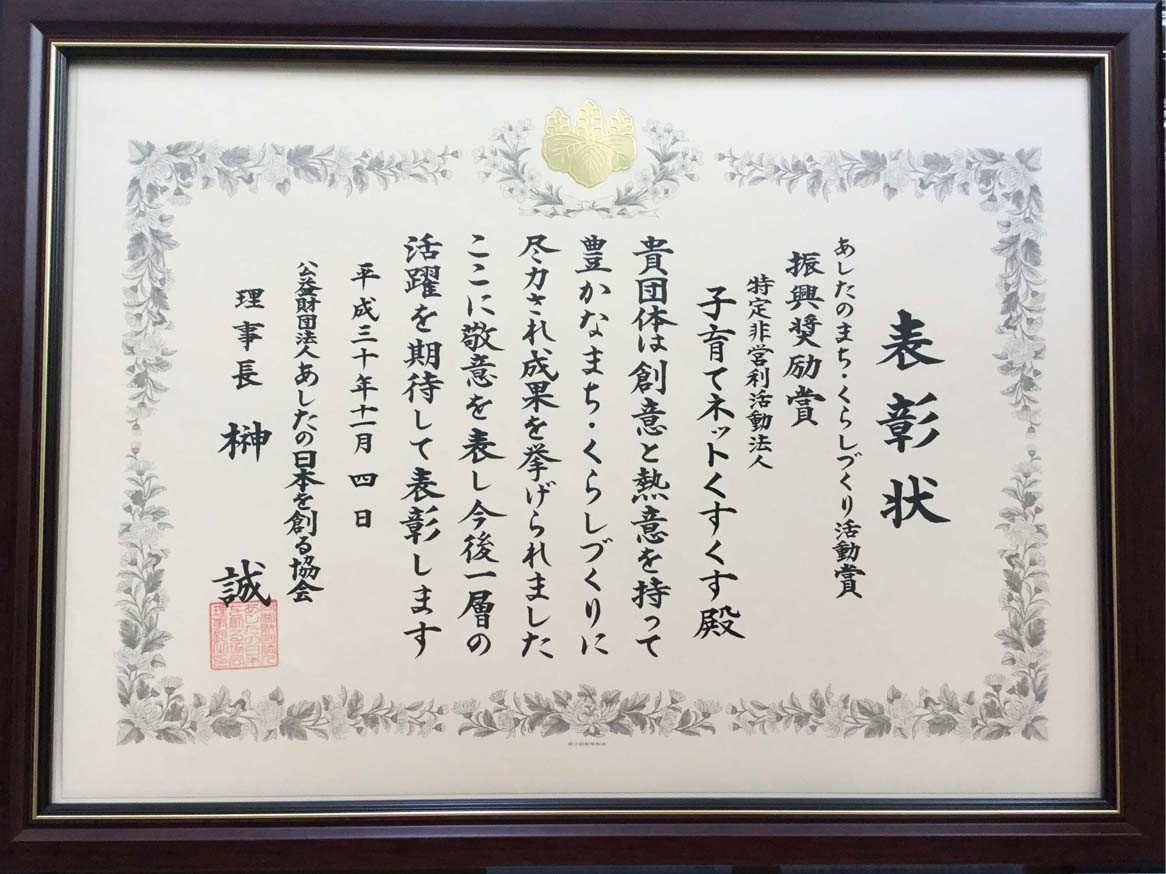 表彰状
あしたのまち・くらしづくり活動賞
振興奨励賞
特定非営利活動法人
子育てネットくすくす殿
貴団体は創意と熱意を持って
豊かなまち・くらしづくりに
尽力され成果を挙げられました
ここに敬意を表し今後一層の
活躍を期待して表彰します
平成三十年十一月四日
公益財団法人あしたの日本を創る協会
理事長 榊 誠